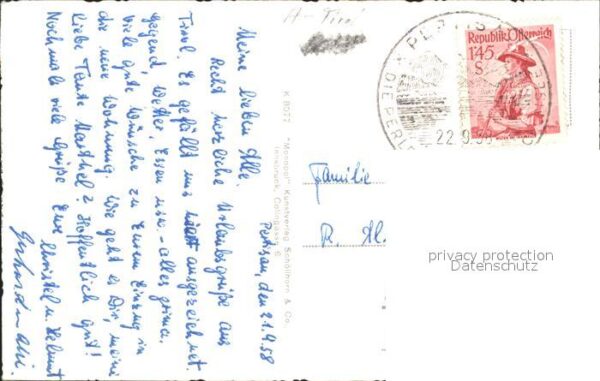 A-Tirol
Pertisau, den 21.9.58
Meine lieben Alle.
Recht herzliche Urlaubsgrüße aus
Tirol. Es gefällt uns ausgezeichnet.
Gegend, Wetter, Essen usw. - alles prima.
Viele gute Wünsche zu Eurem Einzug in
die neue Wohnung. Wie geht es Dir, meine
liebe Tante Marthel? Hoffentlich gut!
Nochmals viele Grüße Eure Christel u. Helmut
K 8077 "Monopol" Kunstverlag Schöllhorn & Co.
Innsbruck,
Republik Österreich
1.45
S
DIE PERL
22.9.58
Familie
R. Al.
privacy protection
Datenschutz